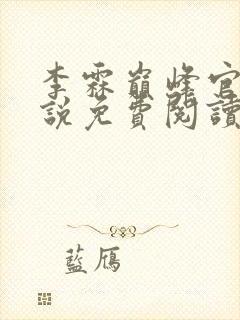 李霖巔峰官
說免費閱讀
藍鴈